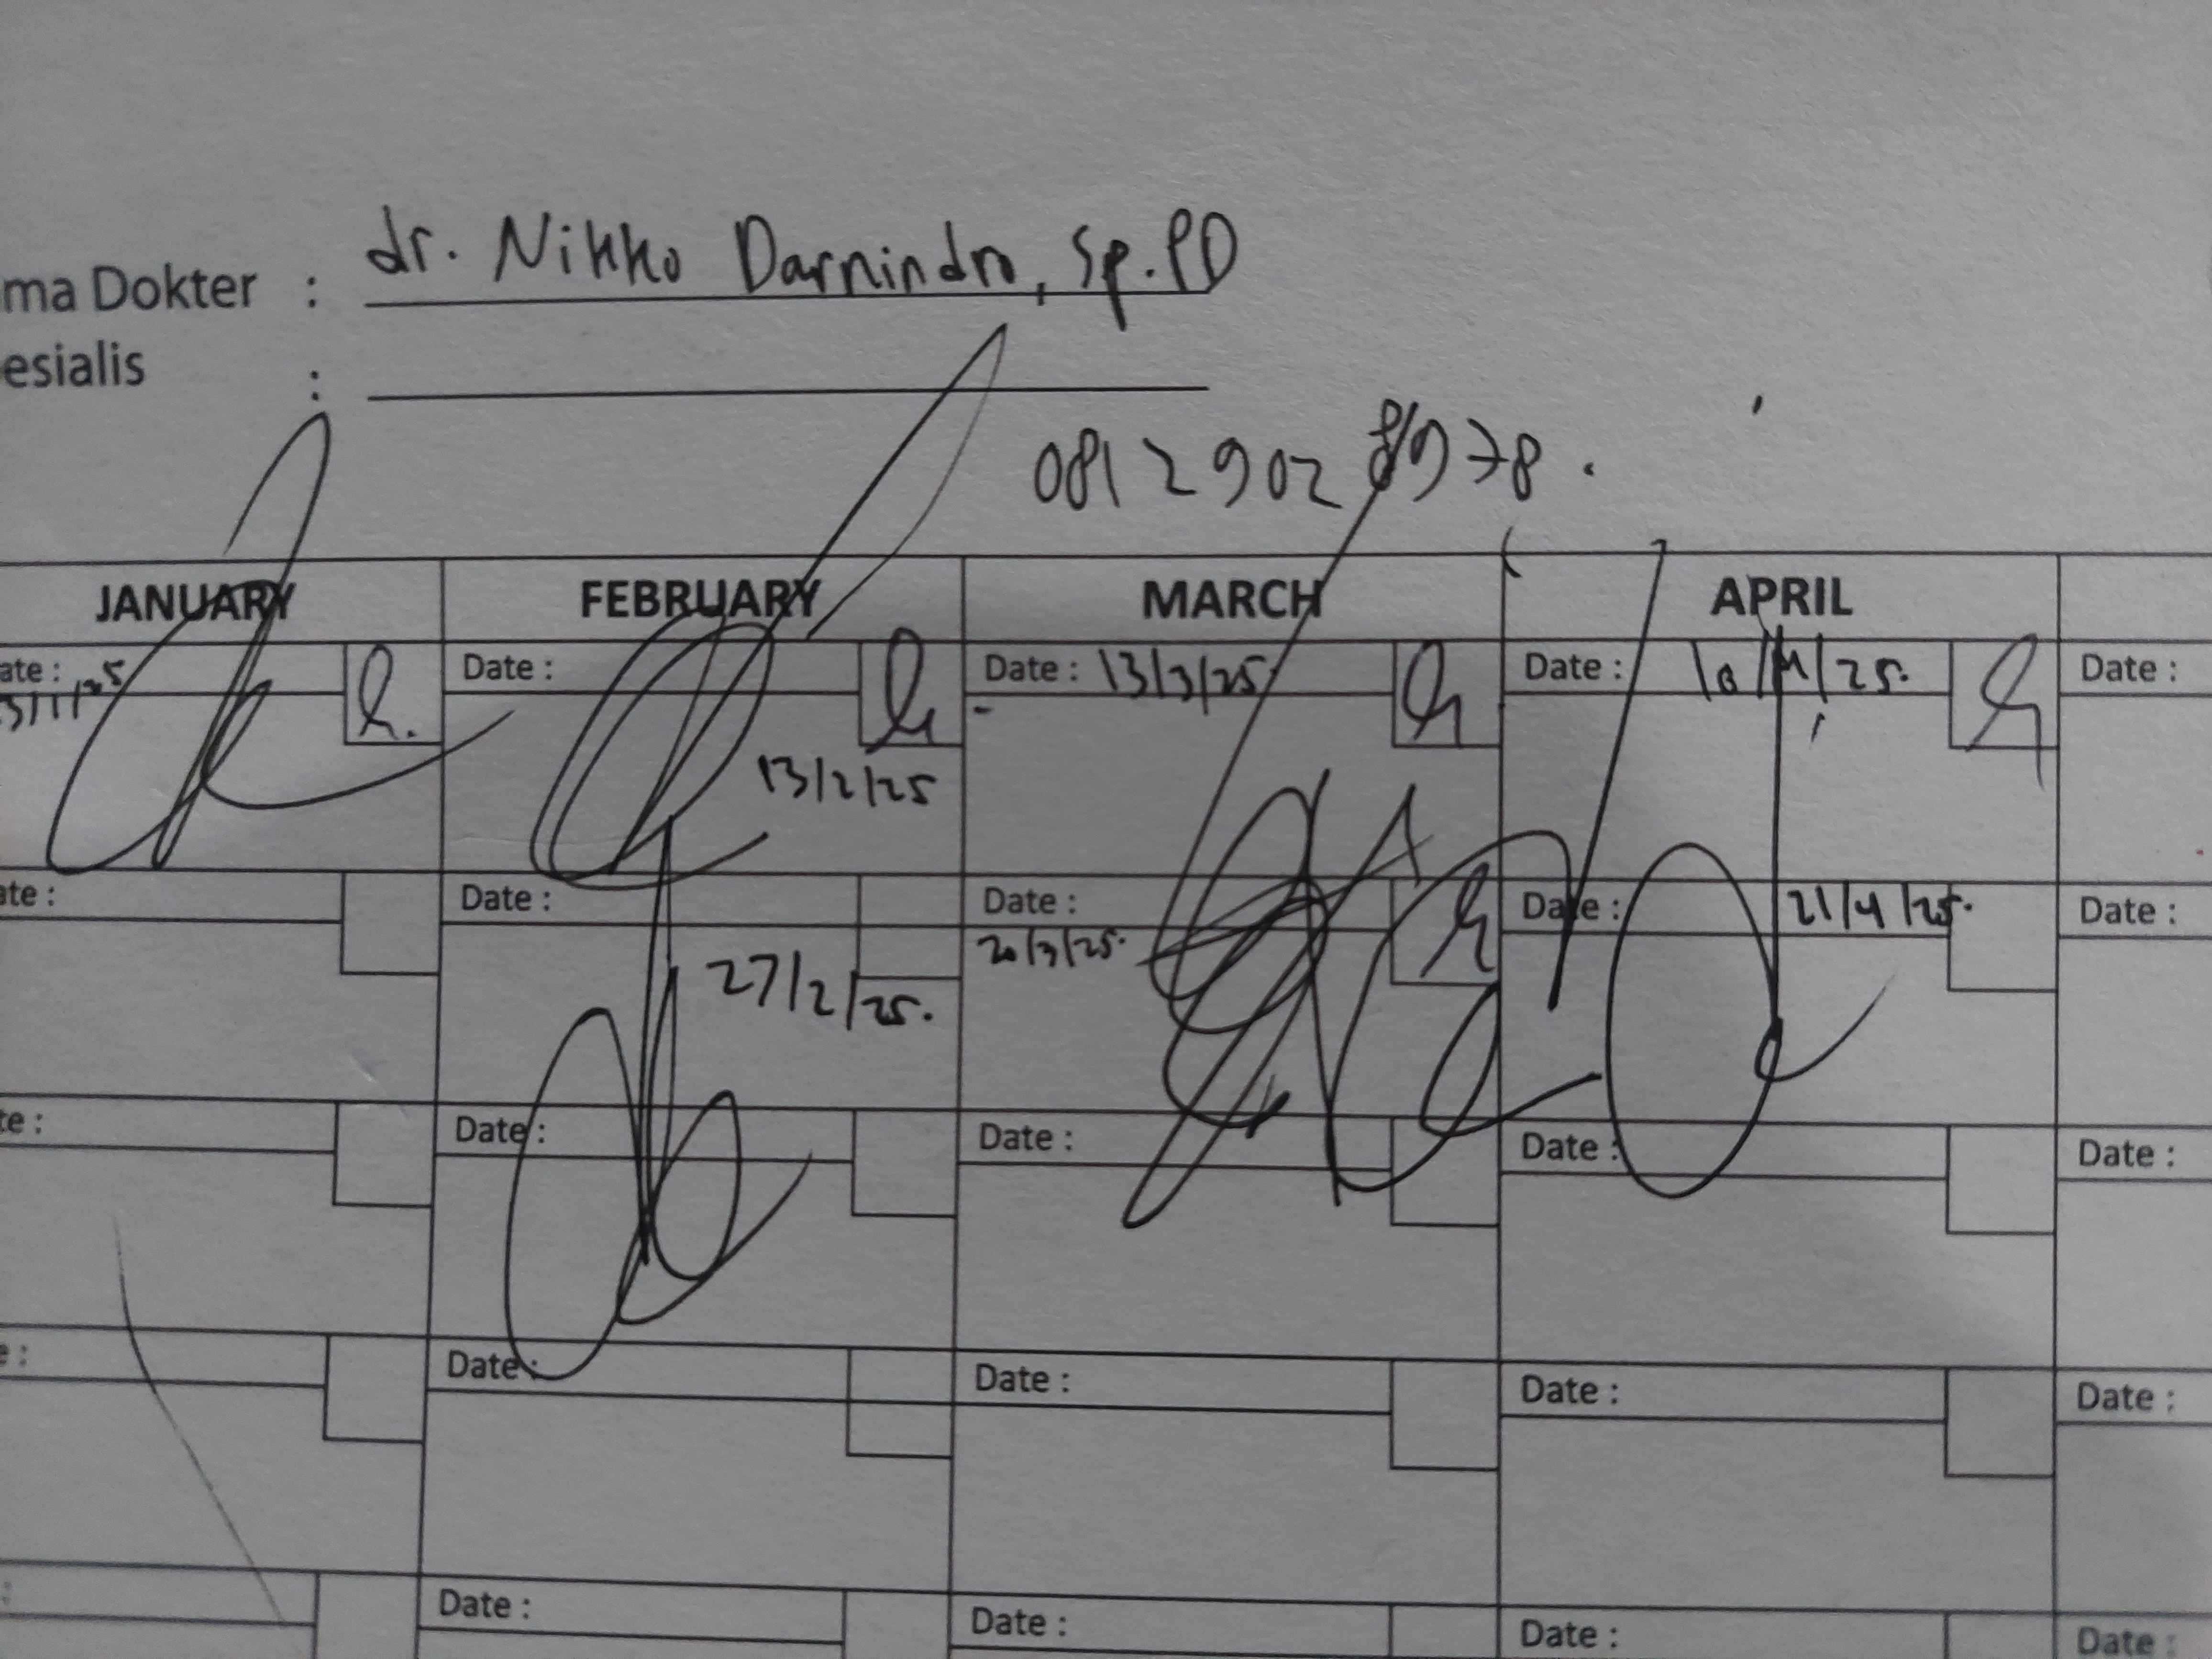 ma Dokter : dr. Nikko Darnindro, Sp.PD
esialis :
0812 902 8978.
JANUARY FEBRUARY MARCH APRIL
ate : Date : Date : 13/3/25 Date : 10/4/25. Date :
13/2/25
ate : Date : Date : Date : 21/4/25. Date :
27/2/25. 20/3/25.
te : Date : Date : Date : Date :
e : Date : Date : Date : Date :
: Date : Date : Date : Date :